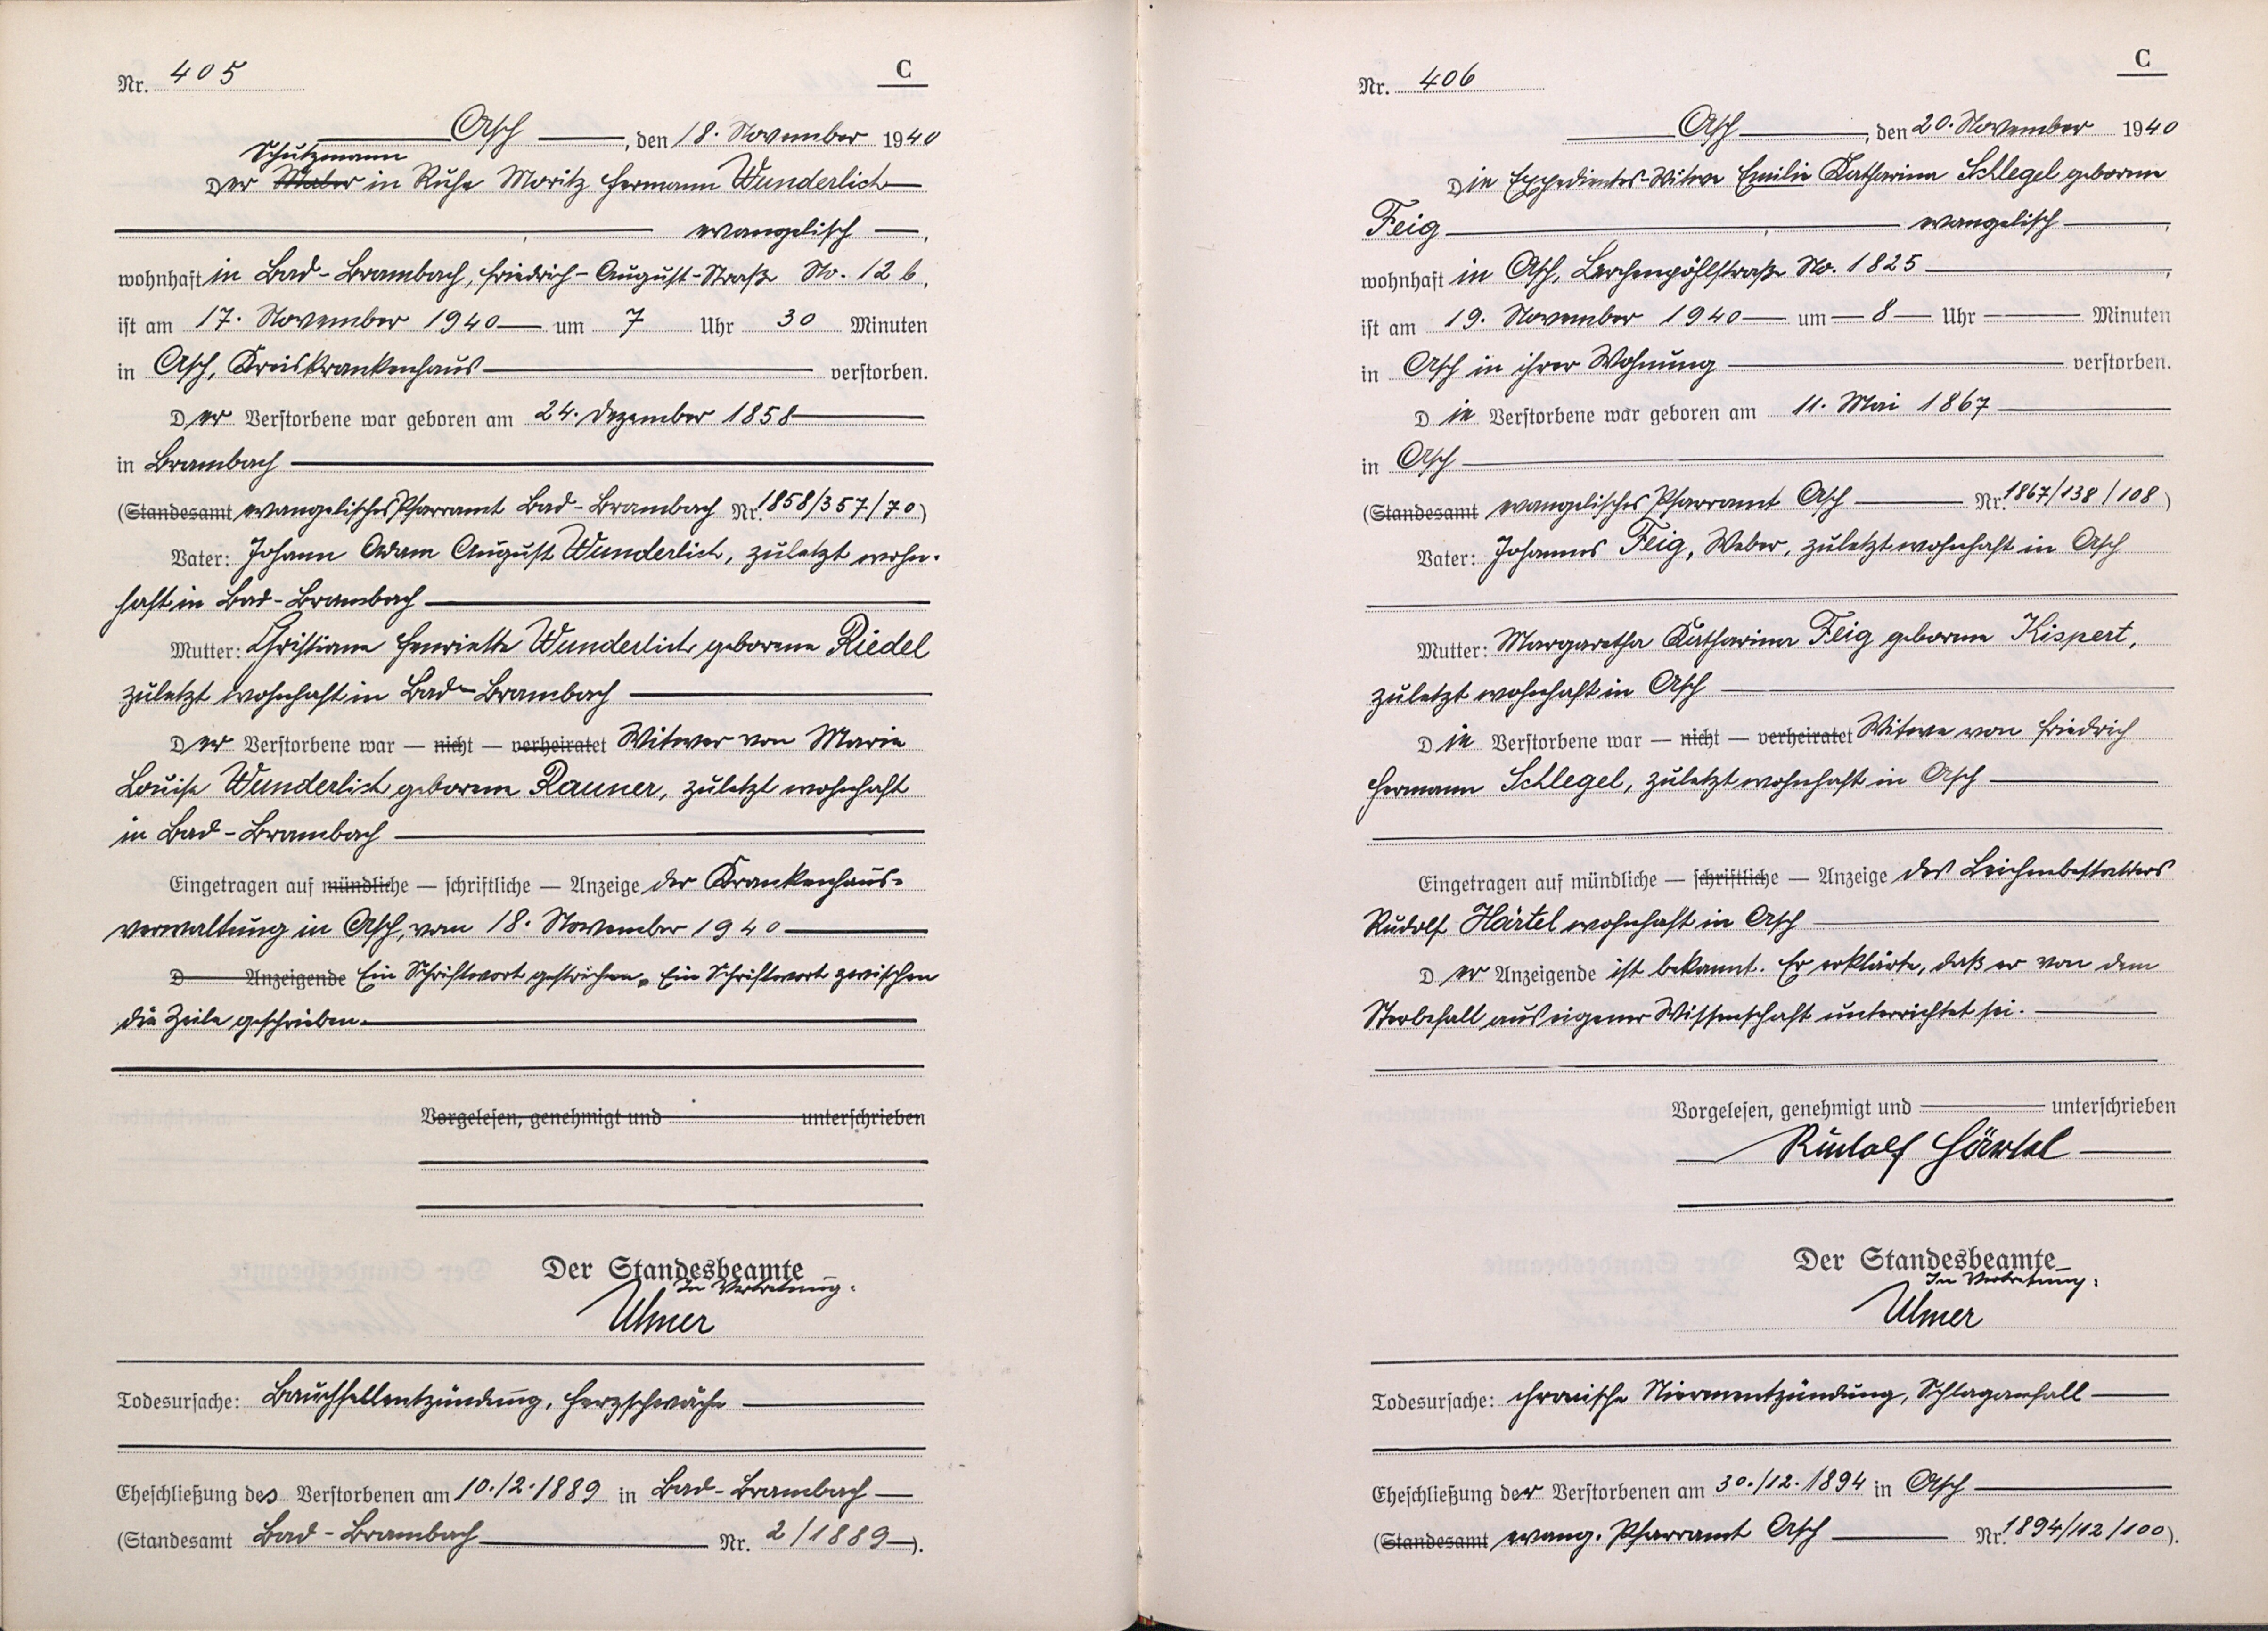 Nr. 405
C
Asch, den 18. November 1940
Schutzmann
Der Maler in Ruhe Moritz Hermann Wunderlich
evangelisch,
wohnhaft in Bad-Brambach, Friedrich-August-Straße No. 12 b,
ist am 17. November 1940 um 7 Uhr 30 Minuten
in Asch, Kreiskrankenhaus verstorben.
Der Verstorbene war geboren am 24. Dezember 1858
in Brambach
(Standesamt evangelisches Pfarramt Bad-Brambach Nr. 1858/357/70)
Vater: Johann Adam August Wunderlich, zuletzt wohn-
haft in Bad-Brambach
Mutter: Christiane Henriette Wunderlich geborene Riedel
zuletzt wohnhaft in Bad-Brambach
Der Verstorbene war — nicht — verheiratet Witwer von Marie
Louise Wunderlich geborene Rauner, zuletzt wohnhaft
in Bad-Brambach
Eingetragen auf mündliche — schriftliche — Anzeige der Krankenhaus-
verwaltung in Asch, vom 18. November 1940
D Anzeigende Ein Schriftwort gestrichen. Ein Schriftwort zwischen
die Zeile geschrieben.
Vorgelesen, genehmigt und unterschrieben
Der Standesbeamte
In Vertretung:
Ulmer
Todesursache: Bauchfellentzündung, Herzschwäche
Eheschließung des Verstorbenen am 10./2.1889 in Bad-Brambach
(Standesamt Bad-Brambach Nr. 2/1889).
Nr. 406
C
Asch, den 20. November 1940
Die Expedientes-Witwe Emilie Katharina Schlegel geborene
Feig evangelisch,
wohnhaft in Asch, Lerchenpöhlstraße No. 1825,
ist am 19. November 1940 um 8 Uhr Minuten
in Asch in ihrer Wohnung verstorben.
Die Verstorbene war geboren am 11. Mai 1867
in Asch
(Standesamt evangelisches Pfarramt Asch Nr. 1867/138/108)
Vater: Johannes Feig, Weber, zuletzt wohnhaft in Asch
Mutter: Margaretha Katharina Feig geborene Kispert,
zuletzt wohnhaft in Asch
Die Verstorbene war — nicht — verheiratet Witwe von Friedrich
Hermann Schlegel, zuletzt wohnhaft in Asch
Eingetragen auf mündliche — schriftliche — Anzeige des Leichenbestatters
Rudolf Härtel wohnhaft in Asch
Der Anzeigende ist bekannt. Er erklärte, daß er von dem
Sterbefall aus eigener Wissenschaft unterrichtet sei.
Vorgelesen, genehmigt und unterschrieben
Rudolf Härtel
Der Standesbeamte
In Vertretung:
Ulmer
Todesursache: chronische Nierenentzündung, Schlaganfall
Eheschließung der Verstorbenen am 30./12.1894 in Asch
(Standesamt evang. Pfarramt Asch Nr. 1894/112/100).